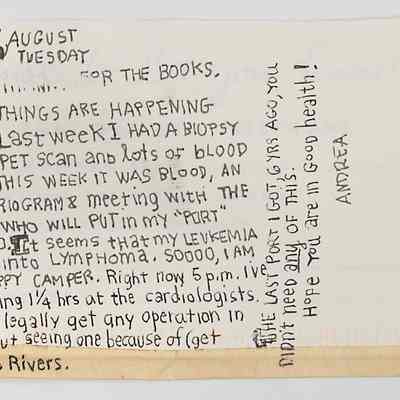 AUGUST
TUESDAY
FOR THE BOOKS.
THINGS ARE HAPPENING
Last week I HAD A BIOPSY
PET scan and lots of BLOOD
THIS WEEK IT WAS BLOOD, AN
RIOGRAM & meeting with THE
WHO WILL PUT in my "PORT"
It seems that my LEUKEMIA
into LYMPHOMA. SOOOO, I AM
PPY CAMPER. Right now 5 p.m. I've
ing 1¼ hrs at the cardiologists.
legally get any operation in
ut seeing one because of (get
s Rivers.
THE LAST PORT I GOT 6 YRS AGO, YOU
DIDN'T need any OF THIS.
Hope you are in Good health!
ANDREA